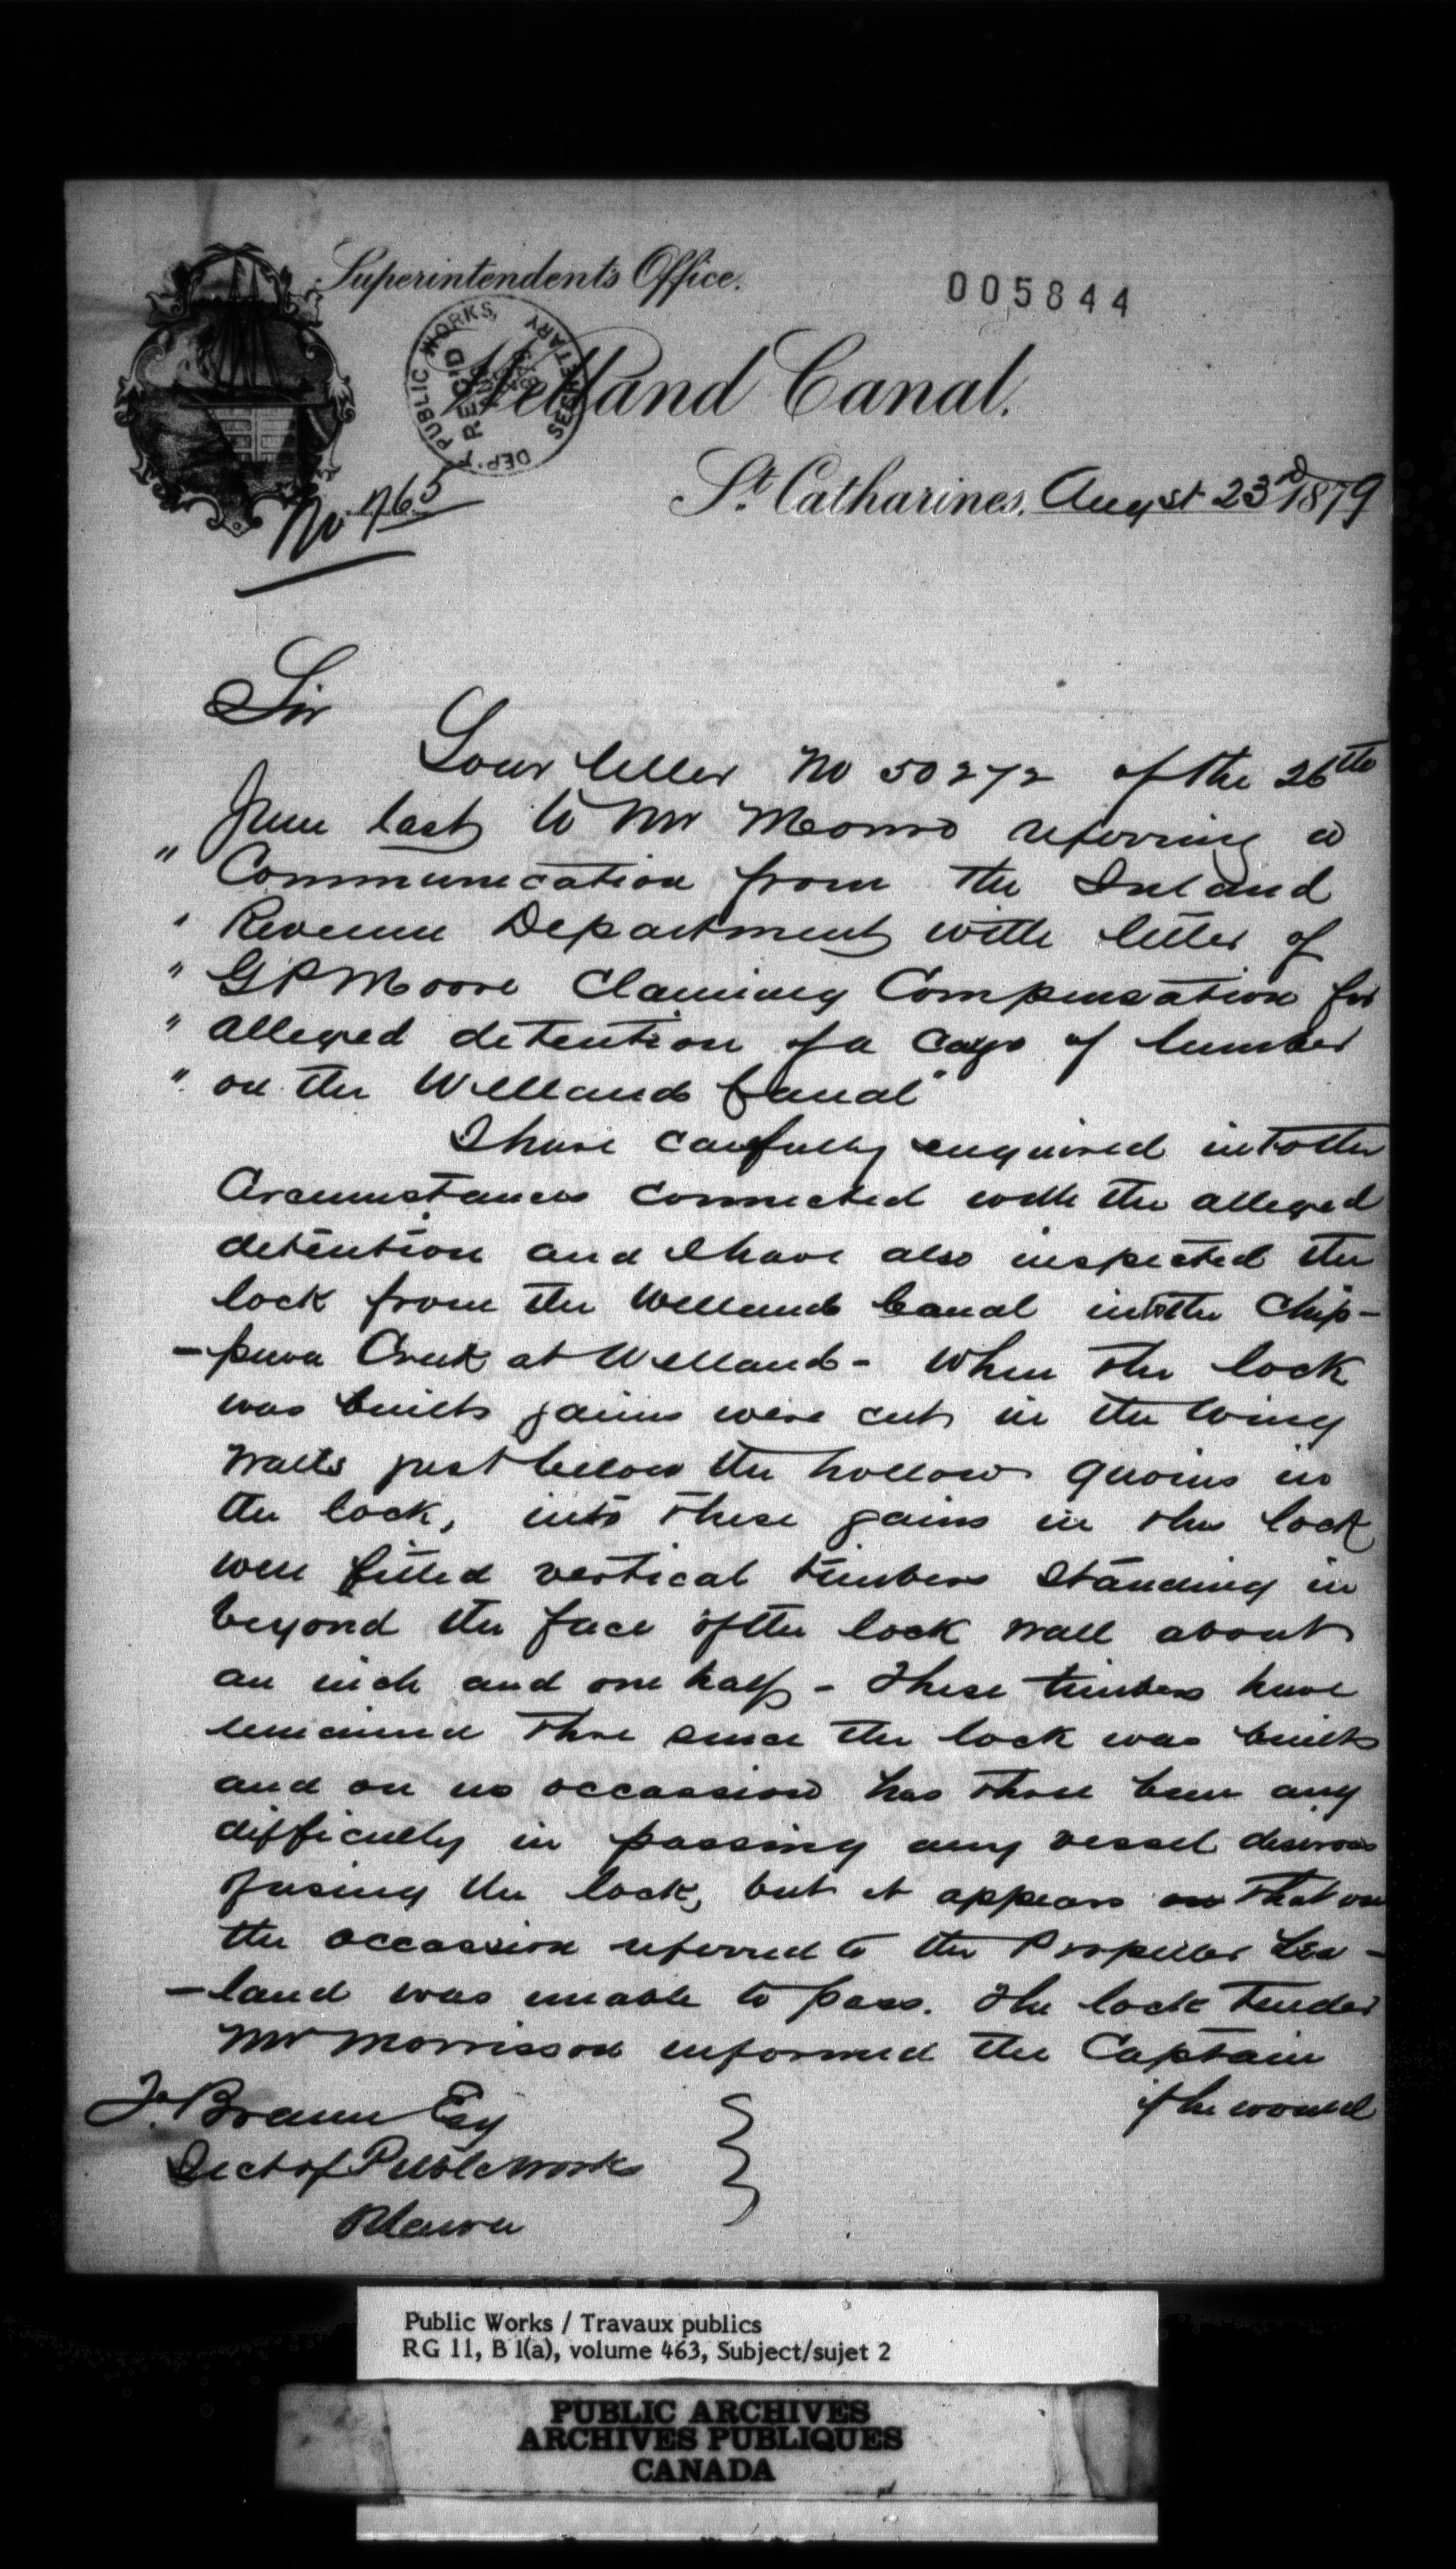 Superintendent's Office.
005844
Welland Canal.
DEP. PUBLIC WORKS, SECRETARY
REC'D
St. Catharines, August 23rd 1879
No 1765
Sir
Your letter No 50272 of the 26th
June last to Mr Monro referring a
" Communication from the Inland
" Revenue Department with letter of
" G P Moore Claiming Compensation for
" alleged detention of a Cargo of lumber
" on the Welland Canal"
I have carefully enquired into the
Circumstances connected with the alleged
detention and I have also inspected the
lock from the Welland Canal into the Chip-
-pewa Creek at Welland - When the lock
was built gains were cut in the Wing
Walls just below the hollow quoins in
the lock, into these gains in the lock
were fitted vertical timbers Standing in
beyond the face of the lock wall about
an inch and one half - These timbers have
remained there since the lock was built
and on no occassion has there been any
difficulty in passing any vessel desirous
of using the lock, but it appears that on
the occassion referred to the Propeller
-land was unable to pass. The lock Tender
Mr Morrisson informed the Captain
if he would
F. Braun Esq
Sect of Public Works
Ottawa
Public Works / Travaux publics
RG 11, B 1(a), volume 463, Subject/sujet 2
PUBLIC ARCHIVES
ARCHIVES PUBLIQUES
CANADA